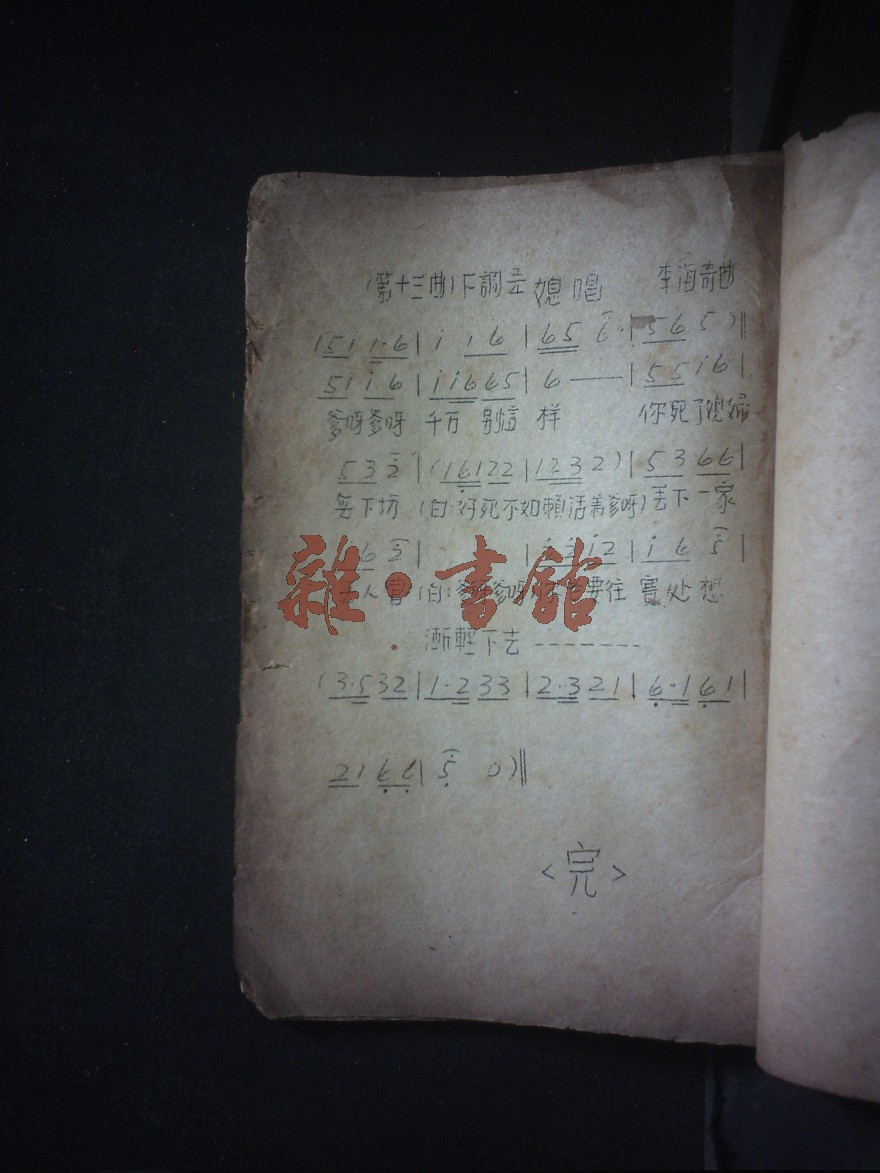 (第十三曲)下調 媳唱 李海奇曲
(51 1·6| i 1 6 |65 6·|56 5·)‖
51 i 6 |i i6 65| 6 —— |55 i6|
爹呀爹呀 千万 别這 样 你死了媳婦
53 2 |(16122 |1232)|53 66|
下坊 (白:好死不如賴活着爹呀)丢下一家
6 2 | i2 |i 6 5|
人 (白:爹呀爹呀 要往 寬处想
漸輕下去 -------
(3·532|1·2 33 |2·3 21|6·1 61|
21 66| 5 0)‖
<完>
雜·書館